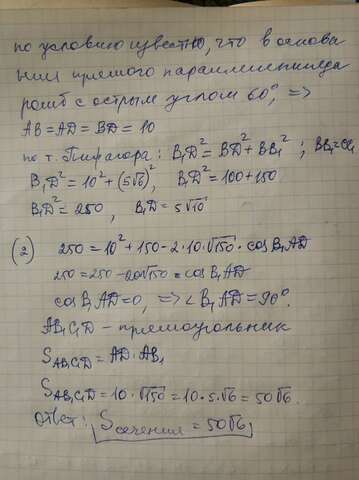 по условию известно, что в основа
нии прямого параллелепипеда
ромб с острым углом 60°, =>
AB = AD = BD = 10
по т. Пифагора: B₁D² = BD² + BB₁² ; BB₁ = CC₁
B₁D² = 10² + (5√6)², B₁D² = 100 + 150
B₁D² = 250, B₁D = 5√10
(2) 250 = 10² + 150 - 2·10·√150 · cos B₁AD
250 = 250 - 20√150 · cos B₁AD
cos B₁AD = 0, => ∠ B₁AD = 90°.
AB₁C₁D - прямоугольник
S AB₁C₁D = AD · AB₁
S AB₁C₁D = 10 · √150 = 10 · 5√6 = 50√6.
Ответ: Sсечения = 50√6